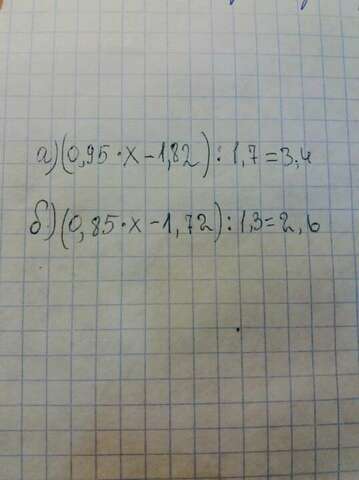 а)(0,95·x-1,82):1,7=3,4
б)(0,85·x-1,72):1,3=2,6